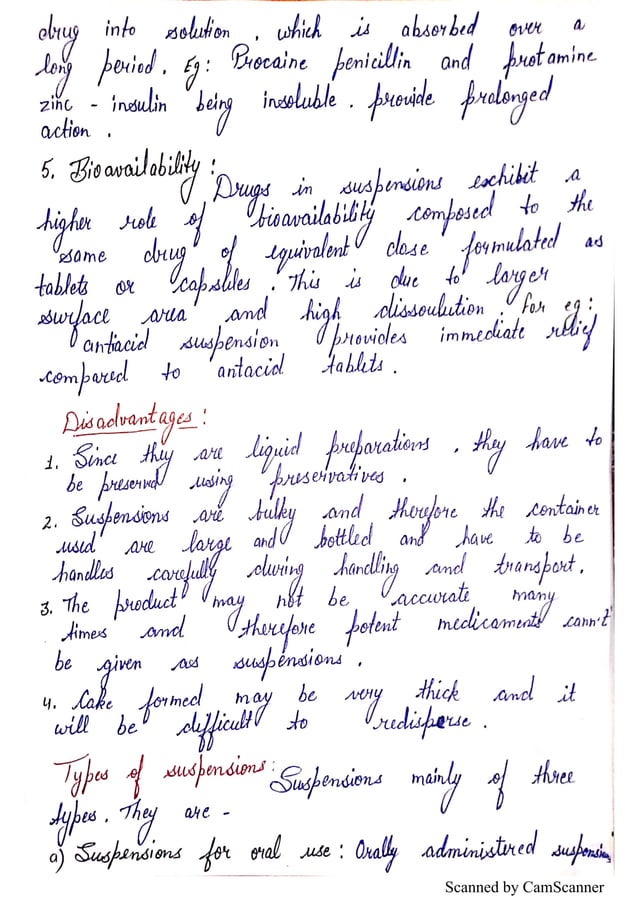 drug into solution, which is absorbed over a
long period. Eg: Procaine penicillin and protamine
zinc - insulin being insoluble. provide prolonged
action.
5. Bioavailability:
Drugs in suspensions exchibit a
higher role of bioavailability composed to the
same drug of equivalent dose formulated as
tablets or capsules. This is due to larger
surface area and high dissoulution. For eg:
antiacid suspension provides immediate relief
compared to antacid tablets.
Disadvantages:
1. Since they are liquid preparations, they have to
be preserved using preservatives.
2. Suspensions are bulky and therefore the container
used are large and bottled and have to be
handles carefully during handling and transport.
3. The product may not be accurate many
times and therefore potent medicaments cann't
be given as suspensions.
4. Cake formed may be very thick and it
will be difficult to redisperse.
Types of suspensions: Suspensions mainly of three
types. They are -
a) Suspensions for oral use: Orally administered suspensions
Scanned by CamScanner